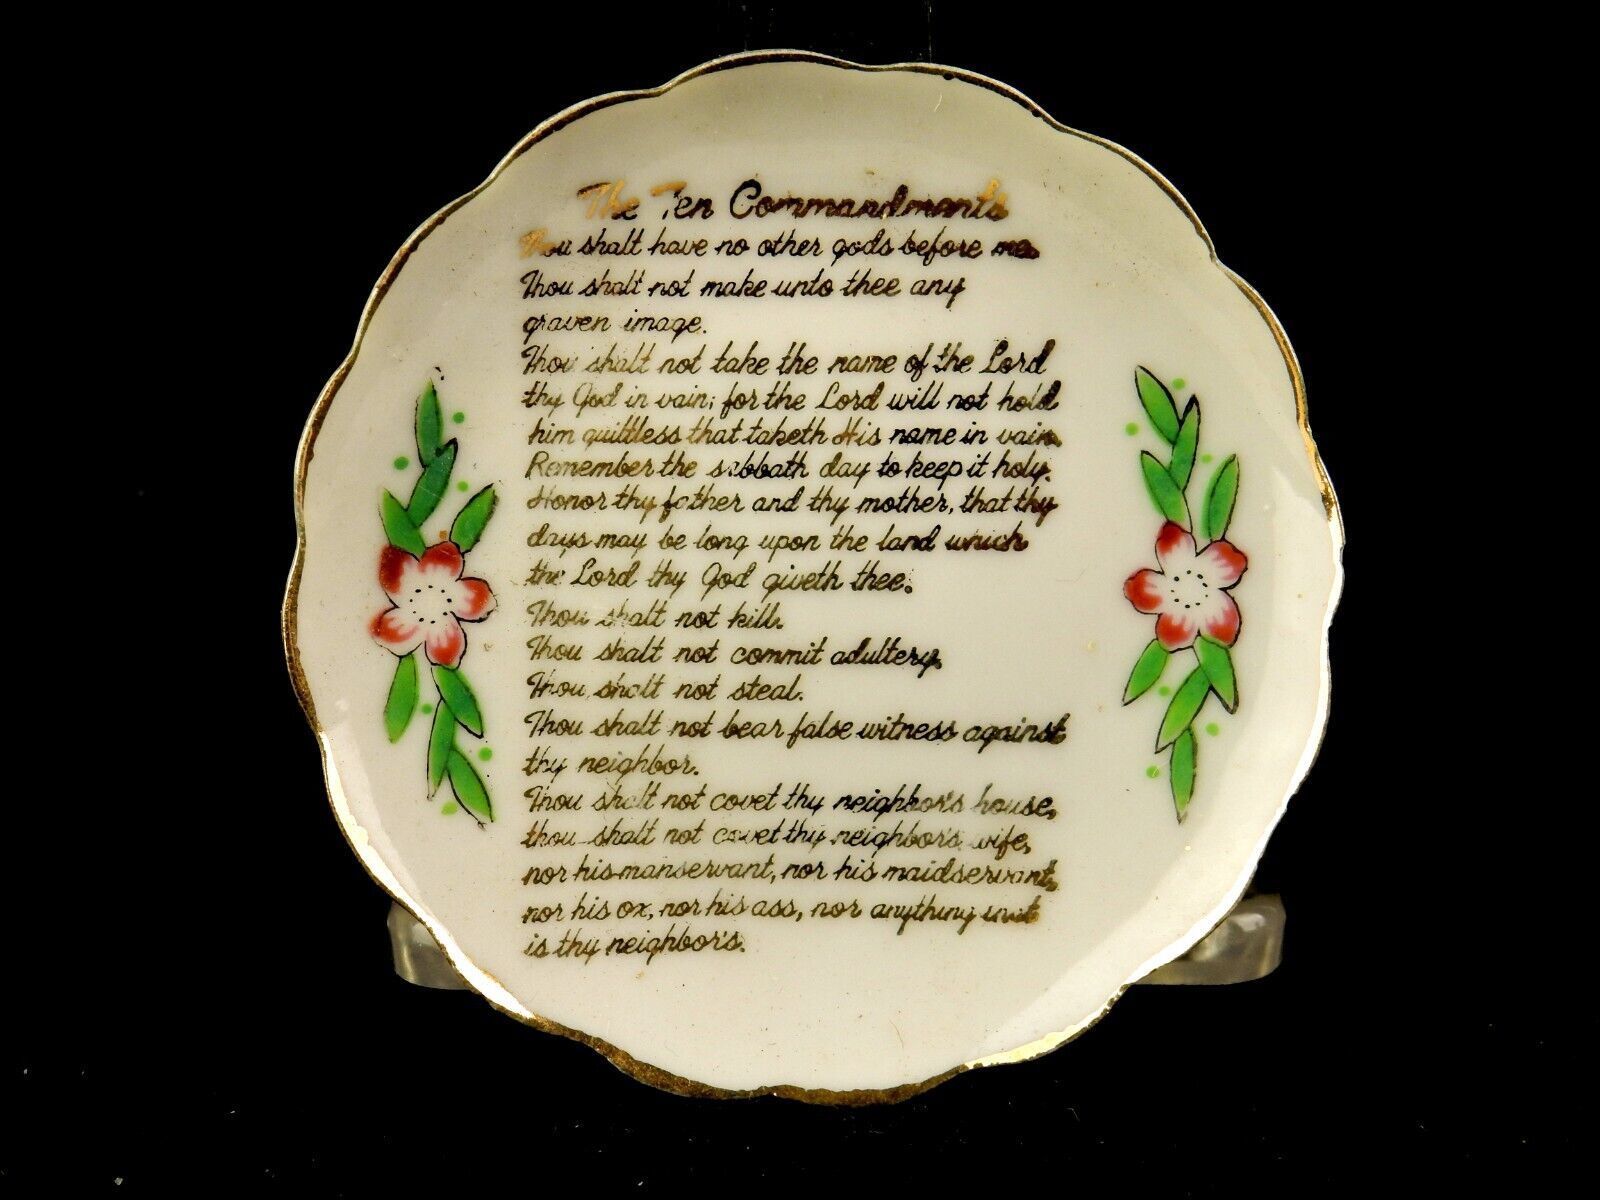 The Ten Commandments
Thou shalt have no other gods before me
Thou shalt not make unto thee any
graven image.
Thou shalt not take the name of the Lord
thy God in vain; for the Lord will not hold
him guiltless that taketh His name in vain.
Remember the sabbath day to keep it holy.
Honor thy father and thy mother, that thy
days may be long upon the land which
the Lord thy God giveth thee.
Thou shalt not kill.
Thou shalt not commit adultery.
Thou shalt not steal.
Thou shalt not bear false witness against
thy neighbor.
Thou shalt not covet thy neighbor's house,
thou shalt not covet thy neighbor's wife,
nor his manservant, nor his maidservant,
nor his ox, nor his ass, nor anything that
is thy neighbor's.